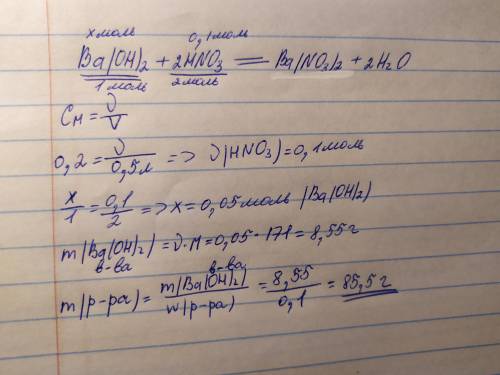 x моль 0,1 моль
Ba(OH)2 + 2HNO3 = Ba(NO3)2 + 2H2O
1 моль 2 моль
Cм = ν/V
0,2 = ν/0,5л => ν(HNO3) = 0,1 моль
x/1 = 0,1/2 => x = 0,05 моль (Ba(OH)2)
m(Ba(OH)2) = ν·M = 0,05·171 = 8,55 г
в-ва
в-ва
m(р-ра) = m(Ba(OH)2)/w(р-ра) = 8,55/0,1 = 85,5 г